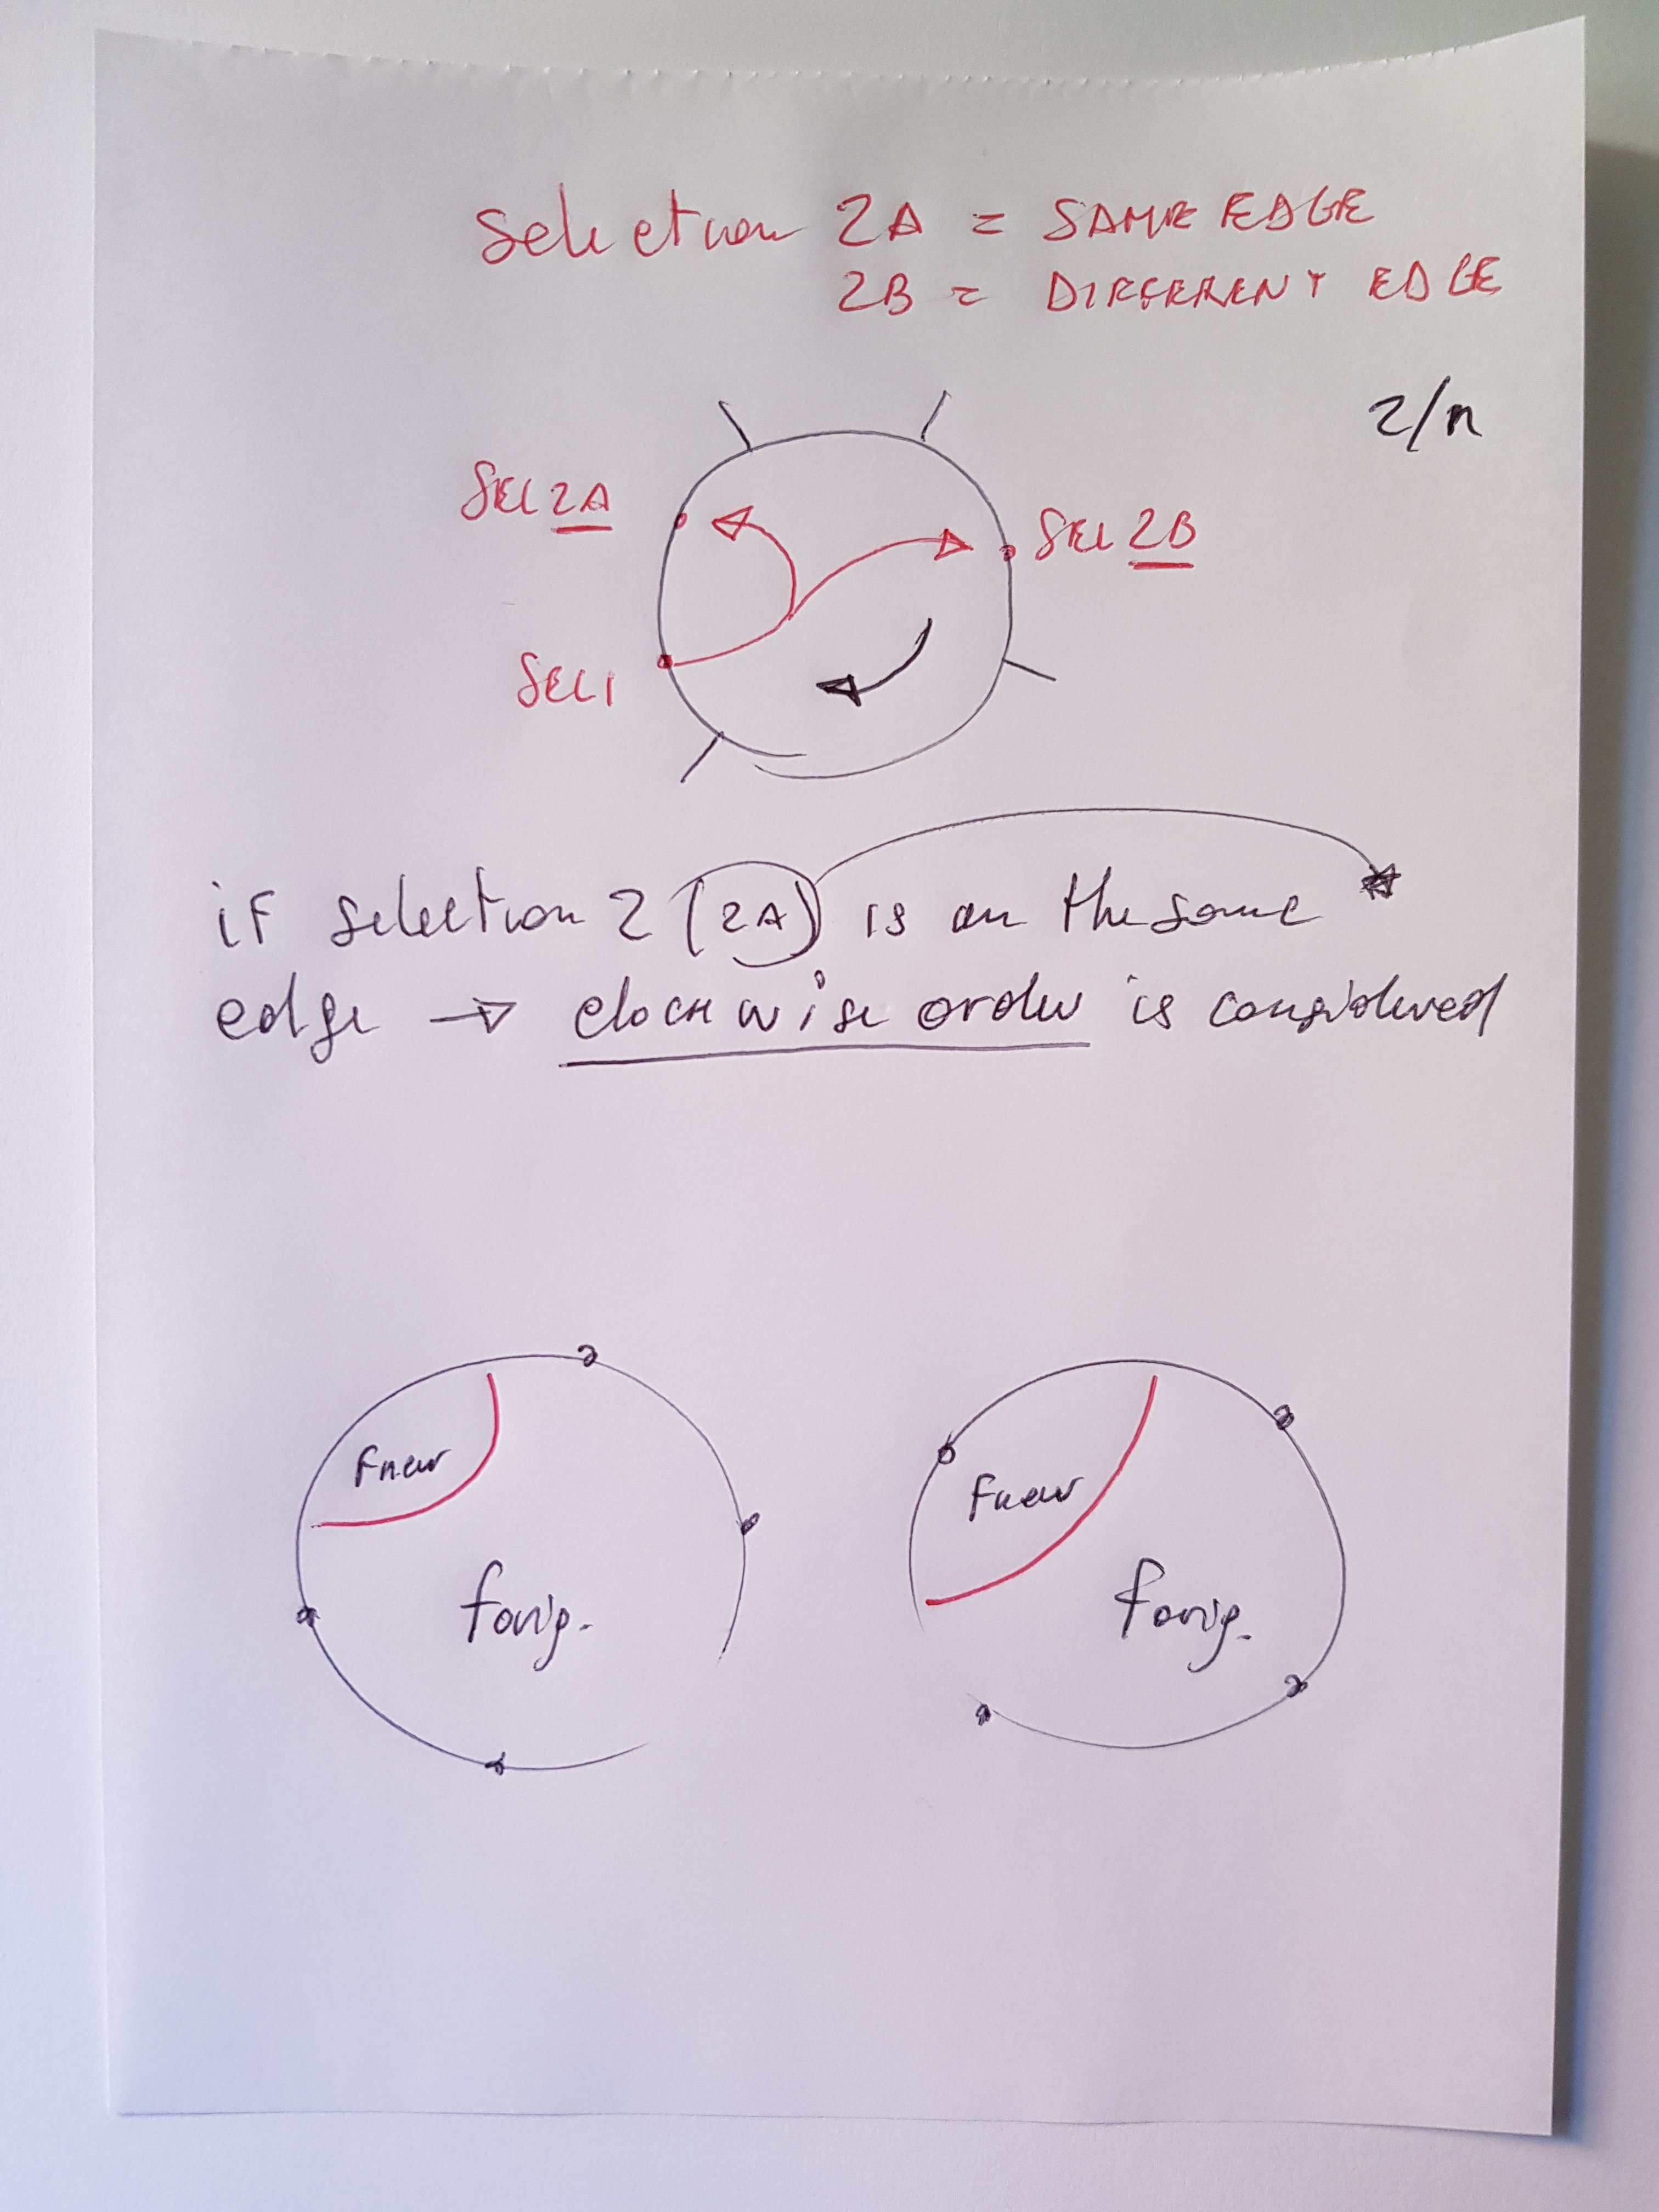 selection 2A = SAME EDGE
2B = DIFFERENT EDGE
2/n
SEL 2A
SEL 2B
SEL 1
if selection 2 (2A) is on the same
edge → clockwise order is considered
Fnew
Fnew
forig.
forig.